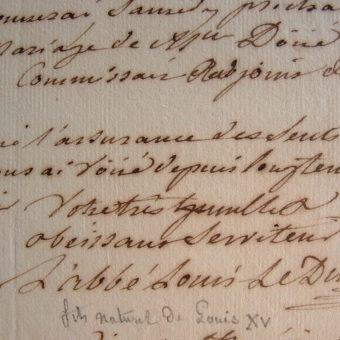 Samedy procha
mariage de Mr Doré
Commissair adjoint d
l'assurance des sent
ous ai voüé depuis longtem
Votre très humble &
obeissant Serviteur
L'abbé Louis Le D
fils naturel de Louis XV